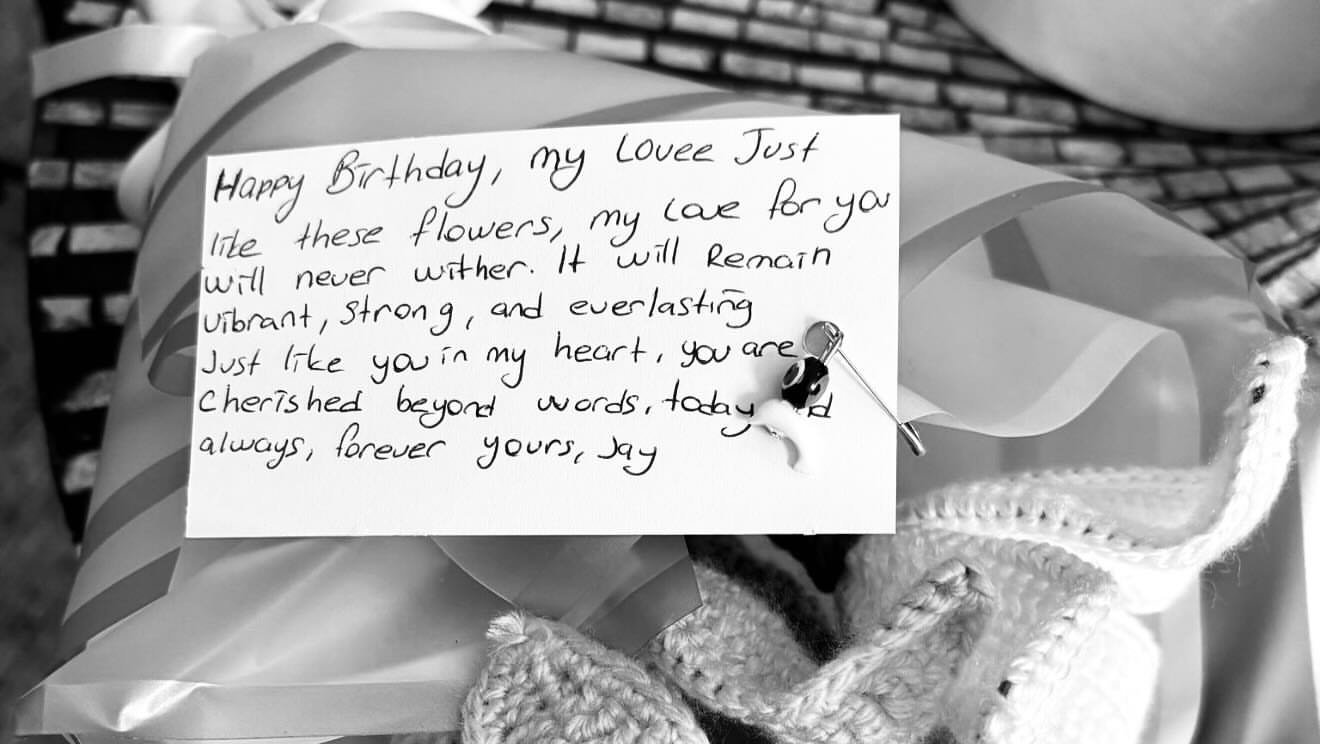 Happy Birthday, my Lovee Just
like these flowers, my love for you
will never wither. It will Remain
vibrant, strong, and everlasting
Just like you in my heart, you are
Cherished beyond words, today
always, forever yours, Jay